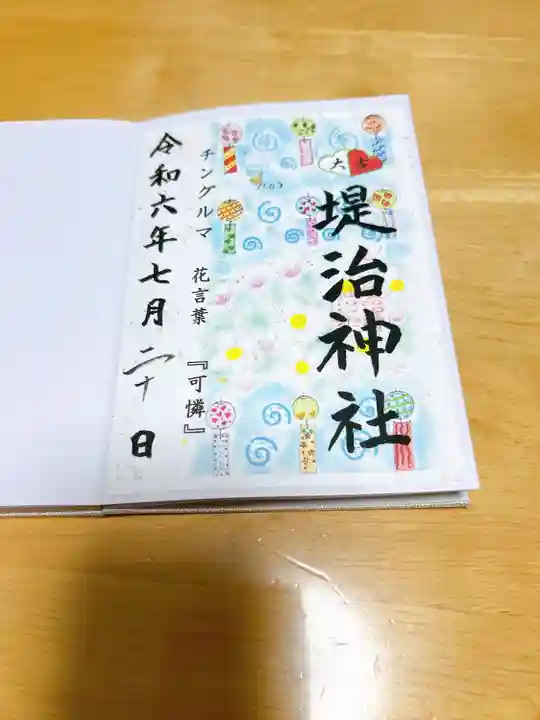 大吉
堤治神社
チングルマ 花言葉 『可憐』
令和六年七月二十日